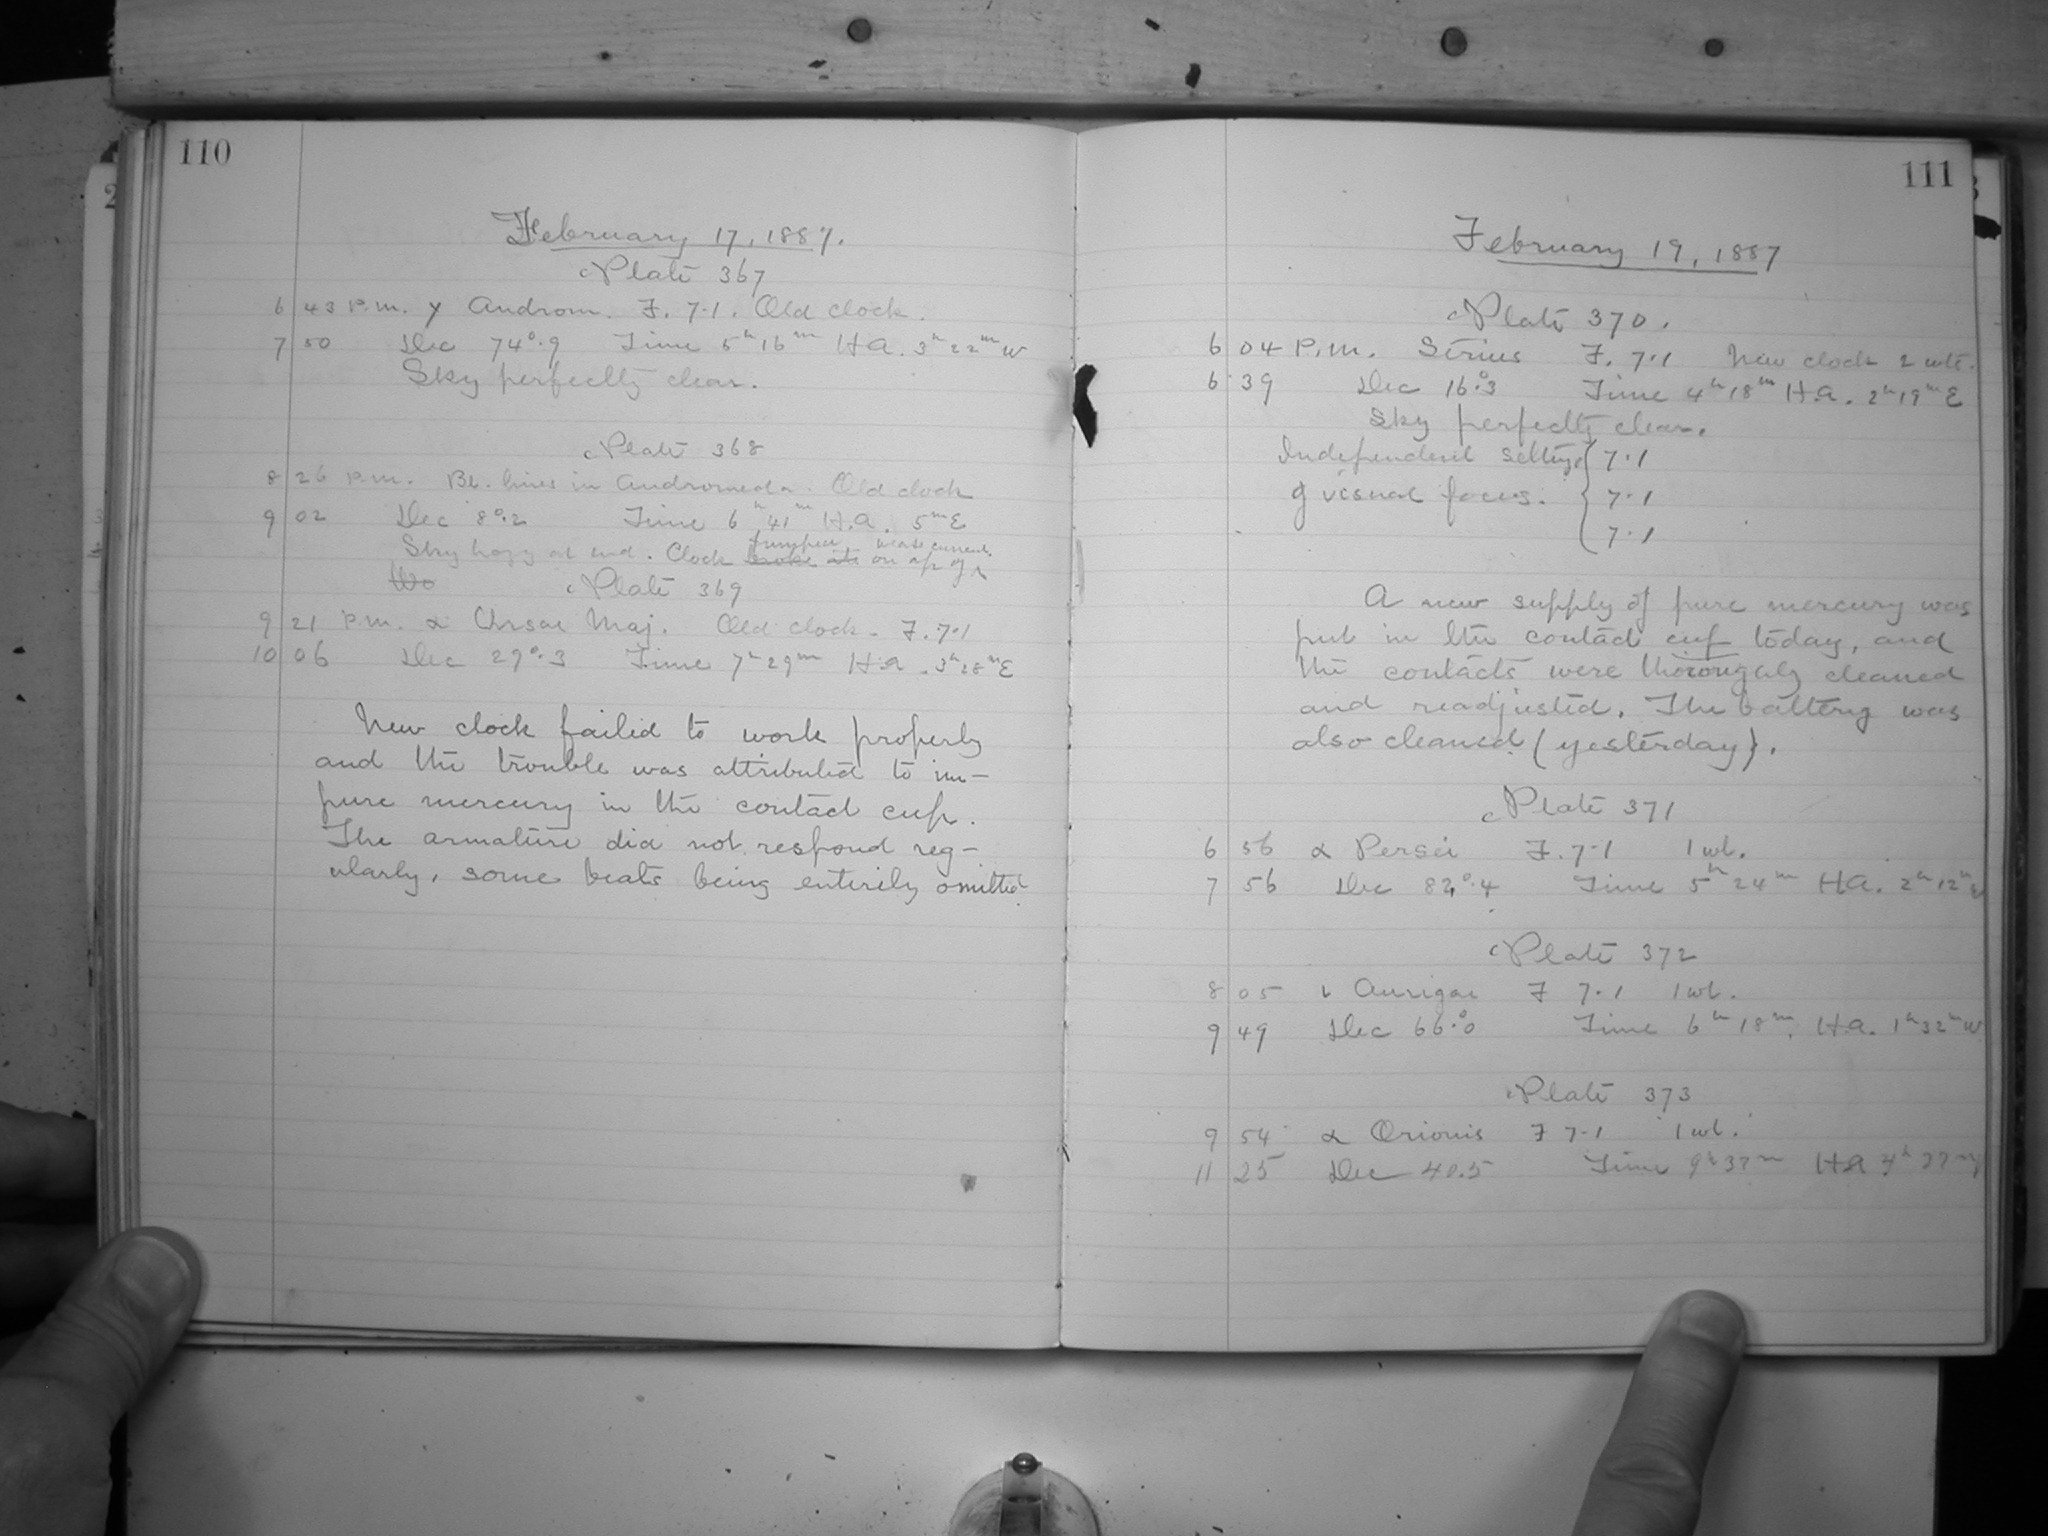 110
February 17, 1887.
Plate 367
6 43 P.m. γ Androm. F. 7.1. Old clock.
7 50 Dec 74°.9 Time 5h 16m H.A. 3h 22m W
Sky perfectly clear.
Plate 368
8 26 P.m. Br. lines in Andromeda. Old clock
9 02 Dec 8°.2 Time 6h 41m H.A. 5m E
Sky hazy at end. Clock on of weak current.
Plate 369
9 21 P.m. α Ursae Maj. Old clock. F. 7.1
10 06 Dec 29°.3 Time 7h 29m H.A. 3h 28m E
New clock failed to work properly
and the trouble was attributed to im-
pure mercury in the contact cup.
The armature did not respond reg-
ularly, some beats being entirely omitted
111
February 19, 1887
Plate 370.
6 04 P.m. Sirius F. 7.1 New clock 2 wts.
6 39 Dec 16°.3 Time 4h 18m H.A. 2h 19m E
Sky perfectly clear.
Independent settings 7.1
of visual focus. 7.1
7.1
A new supply of pure mercury was
put in the contact cup today, and
the contacts were thoroughly cleaned
and readjusted. The battery was
also cleaned (yesterday).
Plate 371
6 56 α Persei F. 7.1 1 wt.
7 56 Dec 82°.4 Time 5h 24m H.A. 2h 12m W
Plate 372
8 05 ι Aurigae F 7.1 1 wt.
9 49 Dec 66°.0 Time 6h 18m. H.A. 1h 32m W
Plate 373
9 54 α Orionis F 7.1 1 wt.
11 25 Dec 40.5 Time 9h 37m H.A.